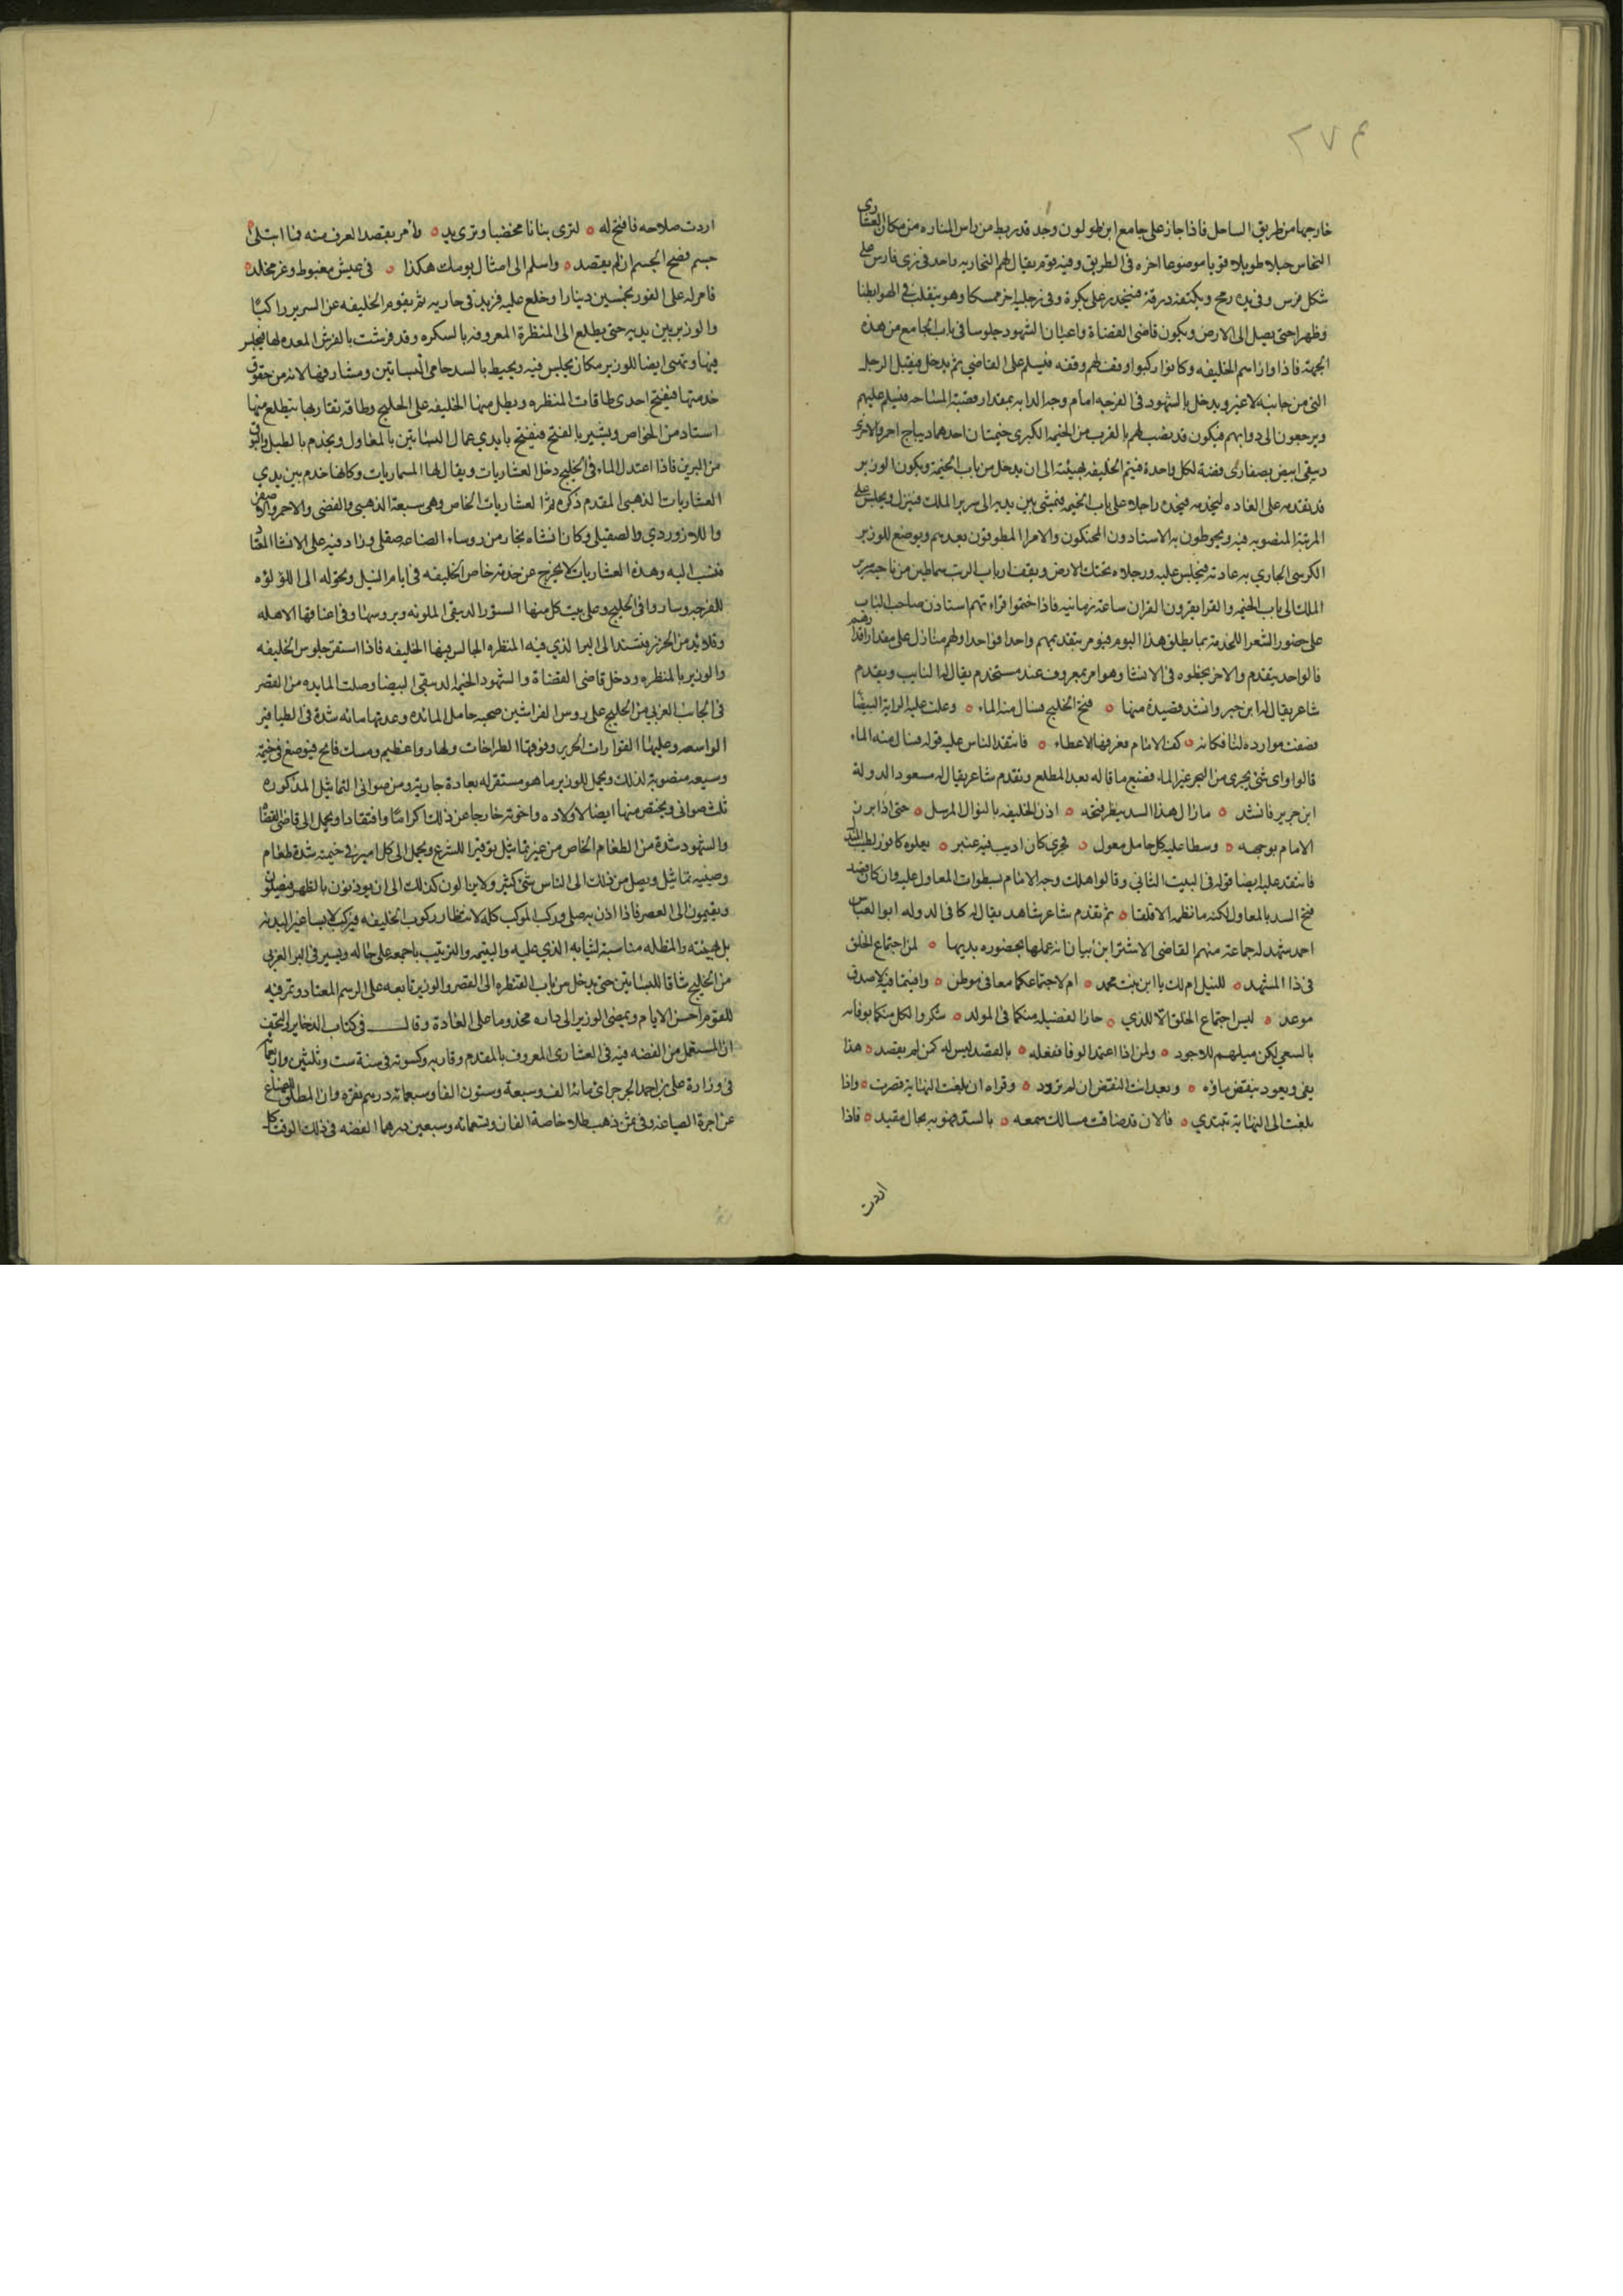 خارجها من طريق الساحل فاذا جاز على جامع ابن طولون وجد قد ربط من راس المناره من مكان العشارى
النحاس حبلا طويلا قويا موضوعا اخره فى الطريق وفيه قوم يقال لهم البحاريه واحد فى زى فارس على
شكل فرس وفى يده رمح وبكتفه درقة فينحدر على بكرة وفى رجليه اخر ممسكا وهو يتقلب فى الهوا بطنا
وظهرا حتى يصل الى الارض ويكون قاضى القضاة واعيان الشهود جلوسا فى باب الجامع من هذه
الجهة فاذا وازاهم الخليفه وكانوا ركبوا وقف لهم وقفه فيسلم على القاضى ثم يدخل فيقبل الرجل
التى من جانبه لاغير ويدخل بالشهود فى الفرجه امام وجه الدابه بمقدار قصبة المساحه فيسلم عليهم
ويرجعون الى دوابهم فيكون قد نصب لهم بالقرب من الخيمه الكبرى خيمتان احدهما ديباج احمر والاخرى
دبيقى ابيض بصفارى فضة لكل واحدة فيتم الخليفه بهيئته الى ان يدخل من باب الخيمة ويكون الوزير
قد تقدمه على العاده ليخدمه فيجده راجلا على باب الخيمه فيمشى بين يديه الى سرير الملك فينزل ويجلس على
المرتبة المنصوبه فيه ويحوطون به الاستادون المحنكون والامرا المطوقون بعدهم ويوضع للوزير
الكرسى الجارى به عادته فيجلس عليه ورجلاه تحتك الارض ويقف ارباب الرتب سماطين من ناحية سرير
الملك الى باب الخيمه والقرا يقرون القران ساعة زمانيه فاذا ختموا قراءتهم استاذن صاحب الباب
على حضور الشعرا للخدمة بما يطلق هذا اليوم فيومر بتقديمهم واحدا فواحدا ولهم منازل على مقدار اقدارهم
فالواحد يتقدم والاخر بخطوه فى الانشا وهو امر معروف عند مستخدم يقال له النايب ويقدم
شاعر يقال له ابن جبر وانشد قصيدة منها ٥ فتح الخليج فسال منه الماء ٥ وعلت عليه الراية البيضا
فصفت موارده لنا فكانه ٥ كف الامام فعرفها الاعطاء ٥ فانتقد الناس عليه قوله فسال منه الماء
قالوا واى شئ يجرى من البحر غير الماء فضيع ما قاله بعد المطلع وتقدم شاعر يقال له مسعود الدولة
ابن حرير فانشد ٥ مازال هذا السد ينظر فتحه ٥ اذن الخليفه بالنوال المرسل ٥ حتى اذا برز
الامام بوجهه ٥ وسطا عليه كل حامل معول ٥ فجرى كان اديب فيه عنبر ٥ يعلوه كافور لطيب المندل
فانتقد عليه ايضا قوله فى البيت الثانى وقالوا اهلكت وجه الامام بسطوات المعاول عليه وان كان قصد
فتح السد بالمعاول لكنه ما نظمه الا قلقا ٥ ثم تقدم شاعر شاهد يقال له كافى الدوله ابو العباس
احمد شهد له جماعة منهم القاضى الاشرف ابن بيان انه عملها بحضوره بديها ٥ لمن اجتماع الخلق
فى ذا المشهد ٥ للنيل ام لك يا ابن بنت محمد ٥ ام لاجتماعكما معا فى موطن ٥ وافيتما فيه لاصدق
موعد ٥ ليس اجتماع الخلق الا للذى ٥ حاز الفضيله منكما فى المولد ٥ شكروا لكل منكما بوفائه
بالسعى لكن ميلهم للاجود ٥ ولمن اذا اعتمد الوفا ففعله ٥ بالقصد ليس له كمن لم يقصد ٥ هذا
يفى ويعود ينقض ماؤه ٥ وبعد انت النقض ان لم تزود ٥ وقراه ان بلغت النهاية قصرت ٥ واذا
بلغت الى النهاية تبتدى ٥ فالان قد ضاقت مسالك سمعه ٥ بالسد فهو به بحال مقيد ٥ فاذا
اردت
اردت صلاحه فافتح له ٥ لترى بنانا مخضبا وترى يد ٥ وأمر بفصد العرق منه فما ابتلى
جسم فصح الجسم ان لم يفصد ٥ واسلم الى امثال يومك هكذا ٥ فى عيش مغبوط وعز مخلد ٥
فامر له على الفور بخمسين دينارا وخلع عليه فزيد فى جاريه ثم يقوم الخليفه عن السرير راكبا
والوزير بين يديه حتى يطلع الى المنظرة المعروفه بالسكره وقد فرشت بالفرش المعده لها فيجلس
فيها وتهيى ايضا للوزير مكان يجلس فيه ويحيط بالسد حامى البساتين ومشارفها لانه من حقوق
خدمتها فيفتح احدى طاقات المنظره ويطل منها الخليفه على الخليج وطاقة تقاربها يتطلع منها
استاد من الخواص ويشير بالفتح فيفتح بايدى عمال البساتين بالمعاول ويخدم بالطبل والبوق
من البرين فاذا اعتدل الماء فى الخليج دخل العشاريات ويقال لها السماريات وكانها خدم بين يدى
العشاريات الذهبى المقدم ذكره ثم العشاريات الخاص وهى سبعة الذهبى والفضى والاحمر والاصفر
واللازوردى والصقيلى وكان انشاه نجار من روساء الصناعه صقلى وزاد فيه على الانشا المعتاد
فنسب اليه وهذه العشاريات لا تخرج عن خدمة خاص الخليفه فى ايام النيل وتحوله الى اللؤلؤه
للفرجه وساروا فى الخليج وعلى بيت كل منها الستور الدبيقى الملونه وبروسها وفى اعناقها الاهله
وقلائد من الخرز فتستند الى البرا الذى فيه المنظره الجالس فيها الخليفه فاذا استقر جلوس الخليفه
والوزير بالمنظره ودخل قاضى القضاة والشهود الخيمه الدبيقى البيضا وصلت المايده من القصر
فى الجانب الغربى من الخليج على روس الفراشين صحبه حامل المائده وعدتها مائه شدة فى الطيافير
الواسعه وعليها القوارات الحرير وفوقها الطراحات ولها رواء عظيم ومسك فايح فيوضع فى خيمة
وسيعه منصوبة لذلك ويحمل للوزير ما هو مستقر له بعادة جارية ومن صوانى التماثيل المذكوره
ثلث صوانى ويختص منها ايضا لاولاده واخوته خارجا عن ذلك اكراما وافتقادا ويحمل الى قاضى القضاة
والشهود شدة من الطعام الخاص من غير تماثيل توقيرا للشرع ويحمل الى كل امير فى خيمته شدة طعام
وصينيه تماثيل ويصل من ذلك الى الناس شئ كثير ولا يزالون كذلك الى ان يوذنون بالظهر فيصلون
ويقيمون الى العصر فاذا اذن به صلى وركب الموكب كله لانتظار ركوب الخليفه فيركب لابسا غير البدنه
بل بهيئته والمظله مناسبة لثيابه الذى عليه واليتيمه والترتيب باجمعه على حاله ويسير فى البر الغربى
من الخليج شاقا للبساتين حتى يدخل من باب القنطره الى القصر والوزير تابعه على الرسم المعتاد وتمر فيه
للقوم احسن الايام ويمضى الوزير الى داره مخدوما على العادة وقال فى كتاب الذخاير والتحف
ان المستعمل من الفضه فيه فى العشارى المعروف بالمقدم وقاربه وكسوته فى سنة ست وثلثين واربعمائة
فى وزارة على بن احمد الجرجراى مائه الف وسبعة وستون الفا وسبعمائه درهم نقره وان المطلق للصناع
عن اجرة الصياغه وفى ثمن ذهب طلاه خاصة الفان وتسعمائه وسبعين درهما الفضه فى ذلك الوقت كل